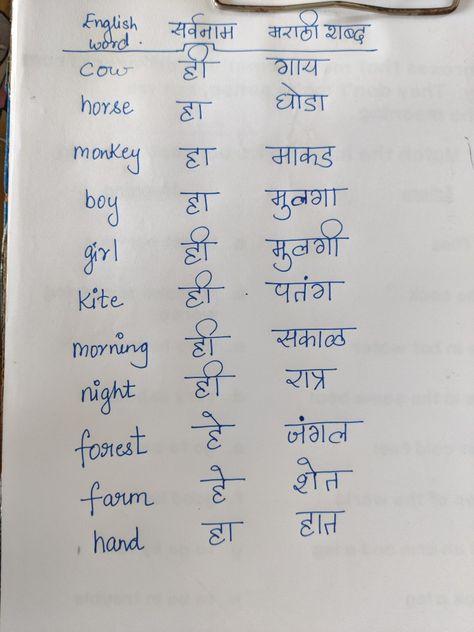 English word. सर्वनाम मराठी शब्द
cow ही गाय
horse हा घोडा
monkey हा माकड
boy हा मुलगा
girl ही मुलगी
kite ही पतंग
morning ही सकाळ
night ही रात्र
forest हे जंगल
farm हे शेत
hand हा हात